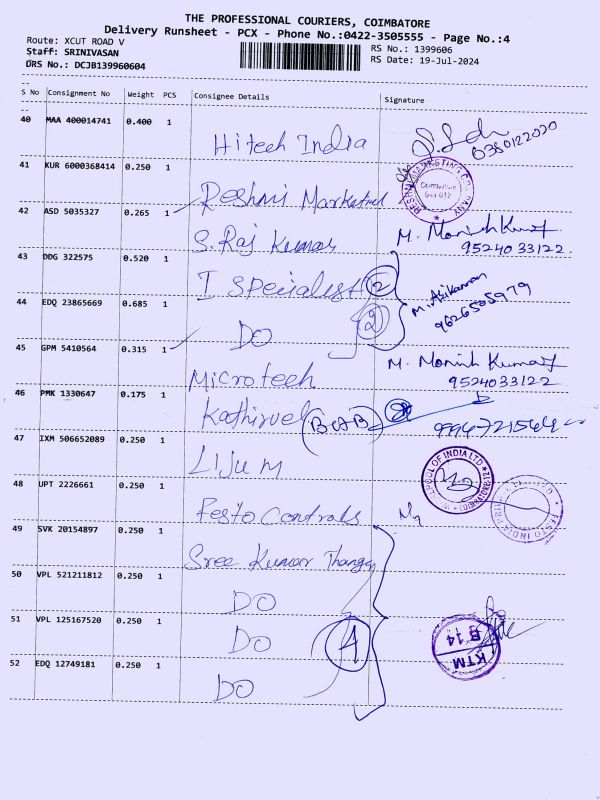 THE PROFESSIONAL COURIERS, COIMBATORE
Delivery Runsheet - PCX - Phone No.:0422-3505555 - Page No.:4
Route: XCUT ROAD V
RS No.: 1399606
Staff: SRINIVASAN
RS Date: 19-Jul-2024
DRS No.: DCJB139960604
S No Consignment No Weight PCS Consignee Details Signature
40 MAA 400014741 0.400 1 Hitech India
6380122020
41 KUR 6000368414 0.250 1 Reshmi Marketing
42 ASD 5035327 0.265 1 S. Raj Kumar M. Manish Kumar
9524033122
43 DDG 322575 0.520 1 I Specialist 2
44 EDQ 23865669 0.685 1 DO 2
9626585979
45 GPM 5410564 0.315 1 Microtech M. Manish Kumar
9524033122
46 PMK 1330647 0.175 1 Kathirvel
47 IXM 506652089 0.250 1 Lijum
48 UPT 2226661 0.250 1 Festo Controls
49 SVK 20154897 0.250 1 Sree Kumar Thanga
50 VPL 521211812 0.250 1 DO
51 VPL 125167520 0.250 1 DO 4
KTM
B 14
52 EDQ 12749181 0.250 1 DO